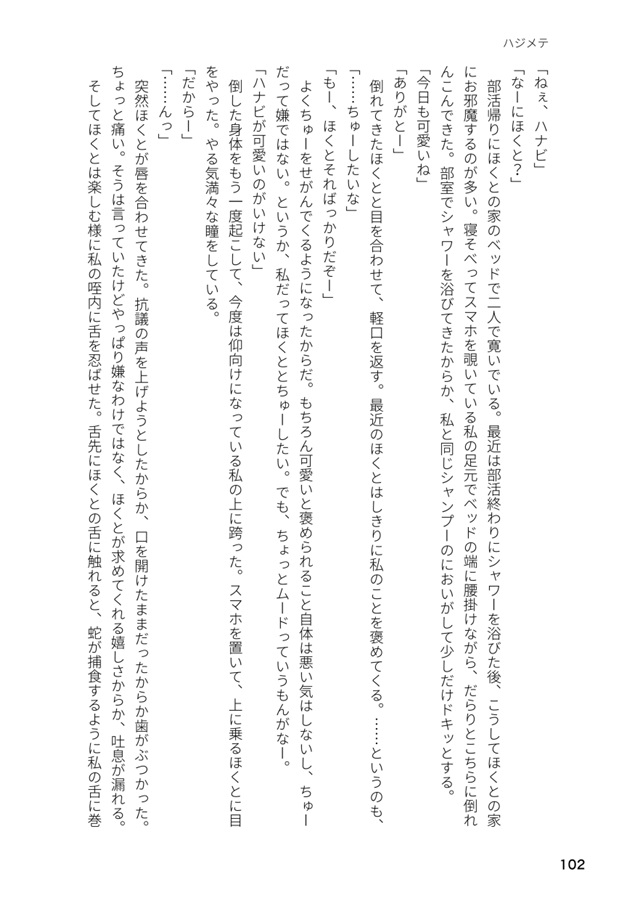 ハジメテ
「ねぇ、ハナビ」
「なーにほくと?」
　部活帰りにほくとの家のベッドで二人で寛いでいる。最近は部活終わりにシャワーを浴びた後、こうしてほくとの家
にお邪魔するのが多い。寝そべってスマホを覗いている私の足元でベッドの端に腰掛けながら、だらりとこちらに倒れ
んこんできた。部室でシャワーを浴びてきたからか、私と同じシャンプーのにおいがして少しだけドキッとする。
「今日も可愛いね」
「ありがとー」
　倒れてきたほくとと目を合わせて、軽口を返す。最近のほくとはしきりに私のことを褒めてくる。……というのも、
「……ちゅーしたいな」
「もー、ほくとそればっかりだぞー」
　よくちゅーをせがんでくるようになったからだ。もちろん可愛いと褒められること自体は悪い気はしないし、ちゅー
だって嫌ではない。というか、私だってほくととちゅーしたい。でも、ちょっとムードっていうもんがなー。
「ハナビが可愛いのがいけない」
　倒した身体をもう一度起こして、今度は仰向けになっている私の上に跨った。スマホを置いて、上に乗るほくとに目
をやった。やる気満々な瞳をしている。
「だからー」
「……んっ」
　突然ほくとが唇を合わせてきた。抗議の声を上げようとしたからか、口を開けたままだったからか歯がぶつかった。
ちょっと痛い。そうは言っていたけどやっぱり嫌なわけではなく、ほくとが求めてくれる嬉しさからか、吐息が漏れる。
　そしてほくとは楽しむ様に私の咥内に舌を忍ばせた。舌先にほくとの舌に触れると、蛇が捕食するように私の舌に巻
102